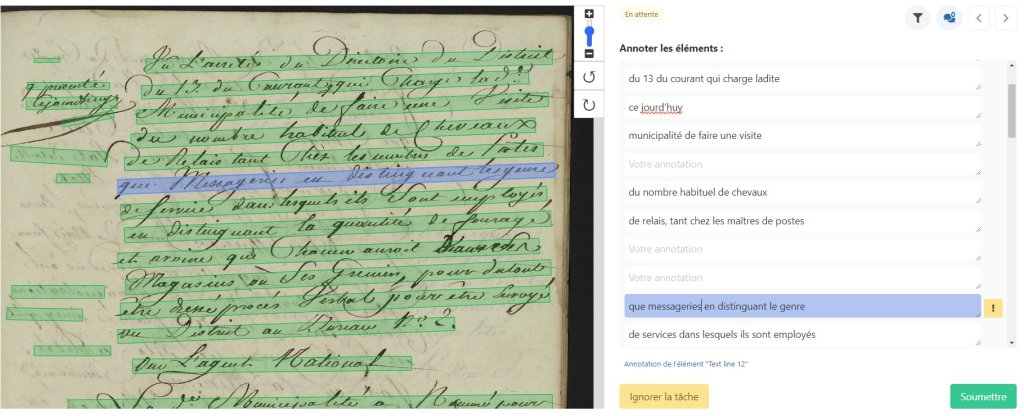 Vu L'arrêté du Directoire du District
du 13. du Courant, qui Charge lad.e
Municipalité, de faire une Visite
du nombre habituel de Chevaux
de Relais tant Chès les maitres de Postes
que Messageries en distinguant le genre
de Service dans lesquels ils Sont employés
en distinguant la quantité de fourage
et avoine que Chacun auroit dans Ses
Magasins ou Ses Greniers, pour du tout
être dressé procès Verbal pour être Envoyé
au District au Bureau N.o 2.
Oui L'agent National
La de Municipalité a Nommé pour
En attente
Annoter les éléments :
du 13 du courant qui charge ladite
ce jourd'huy
municipalité de faire une visite
Votre annotation
du nombre habituel de chevaux
de relais, tant chez les maîtres de postes
Votre annotation
Votre annotation
que messageries en distinguant le genre
!
de services dans lesquels ils sont employés
Annotation de l'élément "Text line 12"
Ignorer la tâche
Soumettre